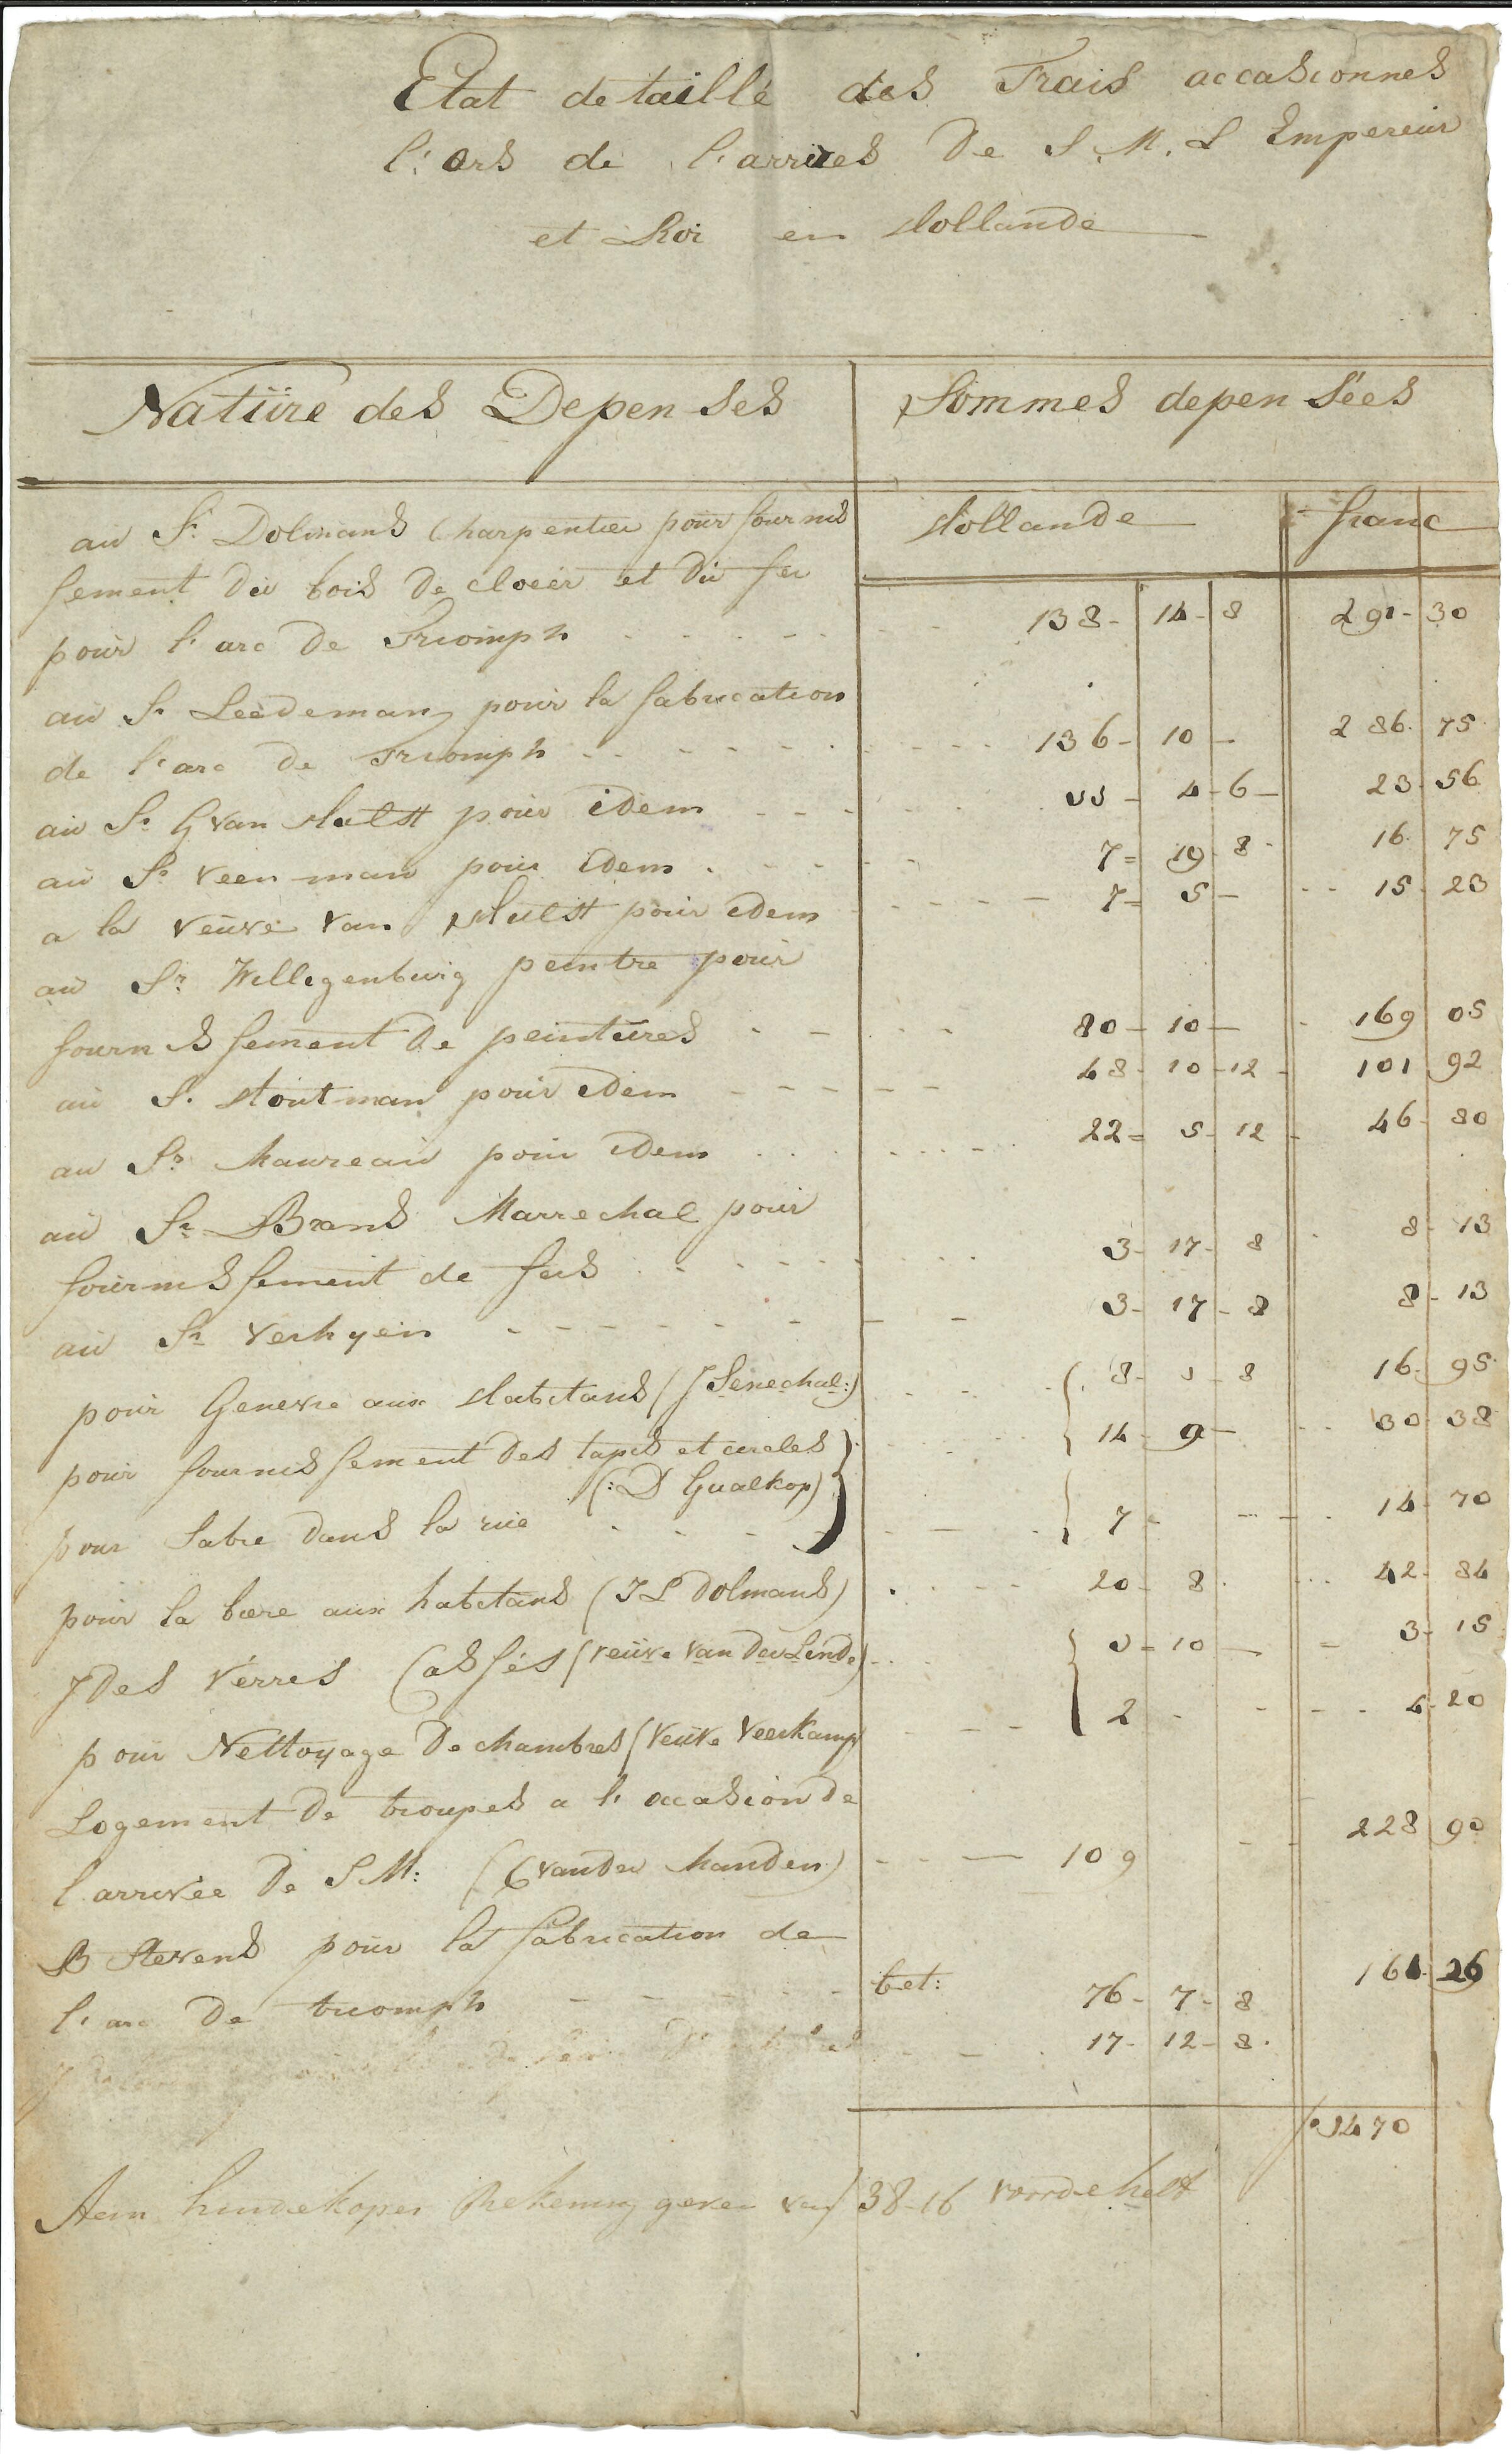 Etat detaillé des Frais accasionnes
l'ors de l'arrivés De S. M. L Empereur
et Roi en Hollande
Natüre des Depenses Sommes depensées
Hollande franc
au Sr. Dolmans Charpentier pour fournis
sement du bois de cloeer et du fer
pour l'arc De Triomph 138 - 14 - 8 291 - 30
au Sr Leedemans pour la fabrication
de l'arc de Triomph 136 - 10 - 286. 75
au Sr G van Hulst pour idem 11 - 4 - 6 - 23 - 56
au Sr Veenman pour idem 7 - 19 - 8 16. 75
a la veuve van Hulst pour idem 7 - 5 - 15 - 23
au Sr. Willegenburg peintre pour
fournissement de peintures 80 - 10 - 169 05
au Sr. Houtman pour idem 48 - 10 - 12 - 101 92
au Sr. Maureau pour idem 22 - 5 - 12 46 - 80
au Sr. Brans Marrechal pour
fournissement de fers 3 - 17 - 8 8 - 13
au Sr Verhyen 3 - 17 - 8 8 - 13
pour Genevre aux Habitans (J Senechal:) 8 - 1 - 8 16 - 95
pour fournissement des tapis et cercles 14 - 9 - 30 - 38
(: D Gualkop)
pour Sable dans la rue 7 - 14 - 70
pour la biere aux habitans (J L Dolmans) 20 - 8. 42 - 84
J des Verres Cassés (veuve van der Linde) 1 - 10 - 3 - 15
pour Nettoyage de chambres (Veuve Veerkamp 2 - 4 - 20
Logement de troupes a l'occasion de
l'arrivée de S M: (G van der Manden) 109 228 90
B Stevens pour la fabrication de
l'arc De triomph bet: 76 - 7 - 8 161. 26
17 - 12 - 8.
f 1470
Aem hindekoper Rekening geven van f 38-16 voor de helft